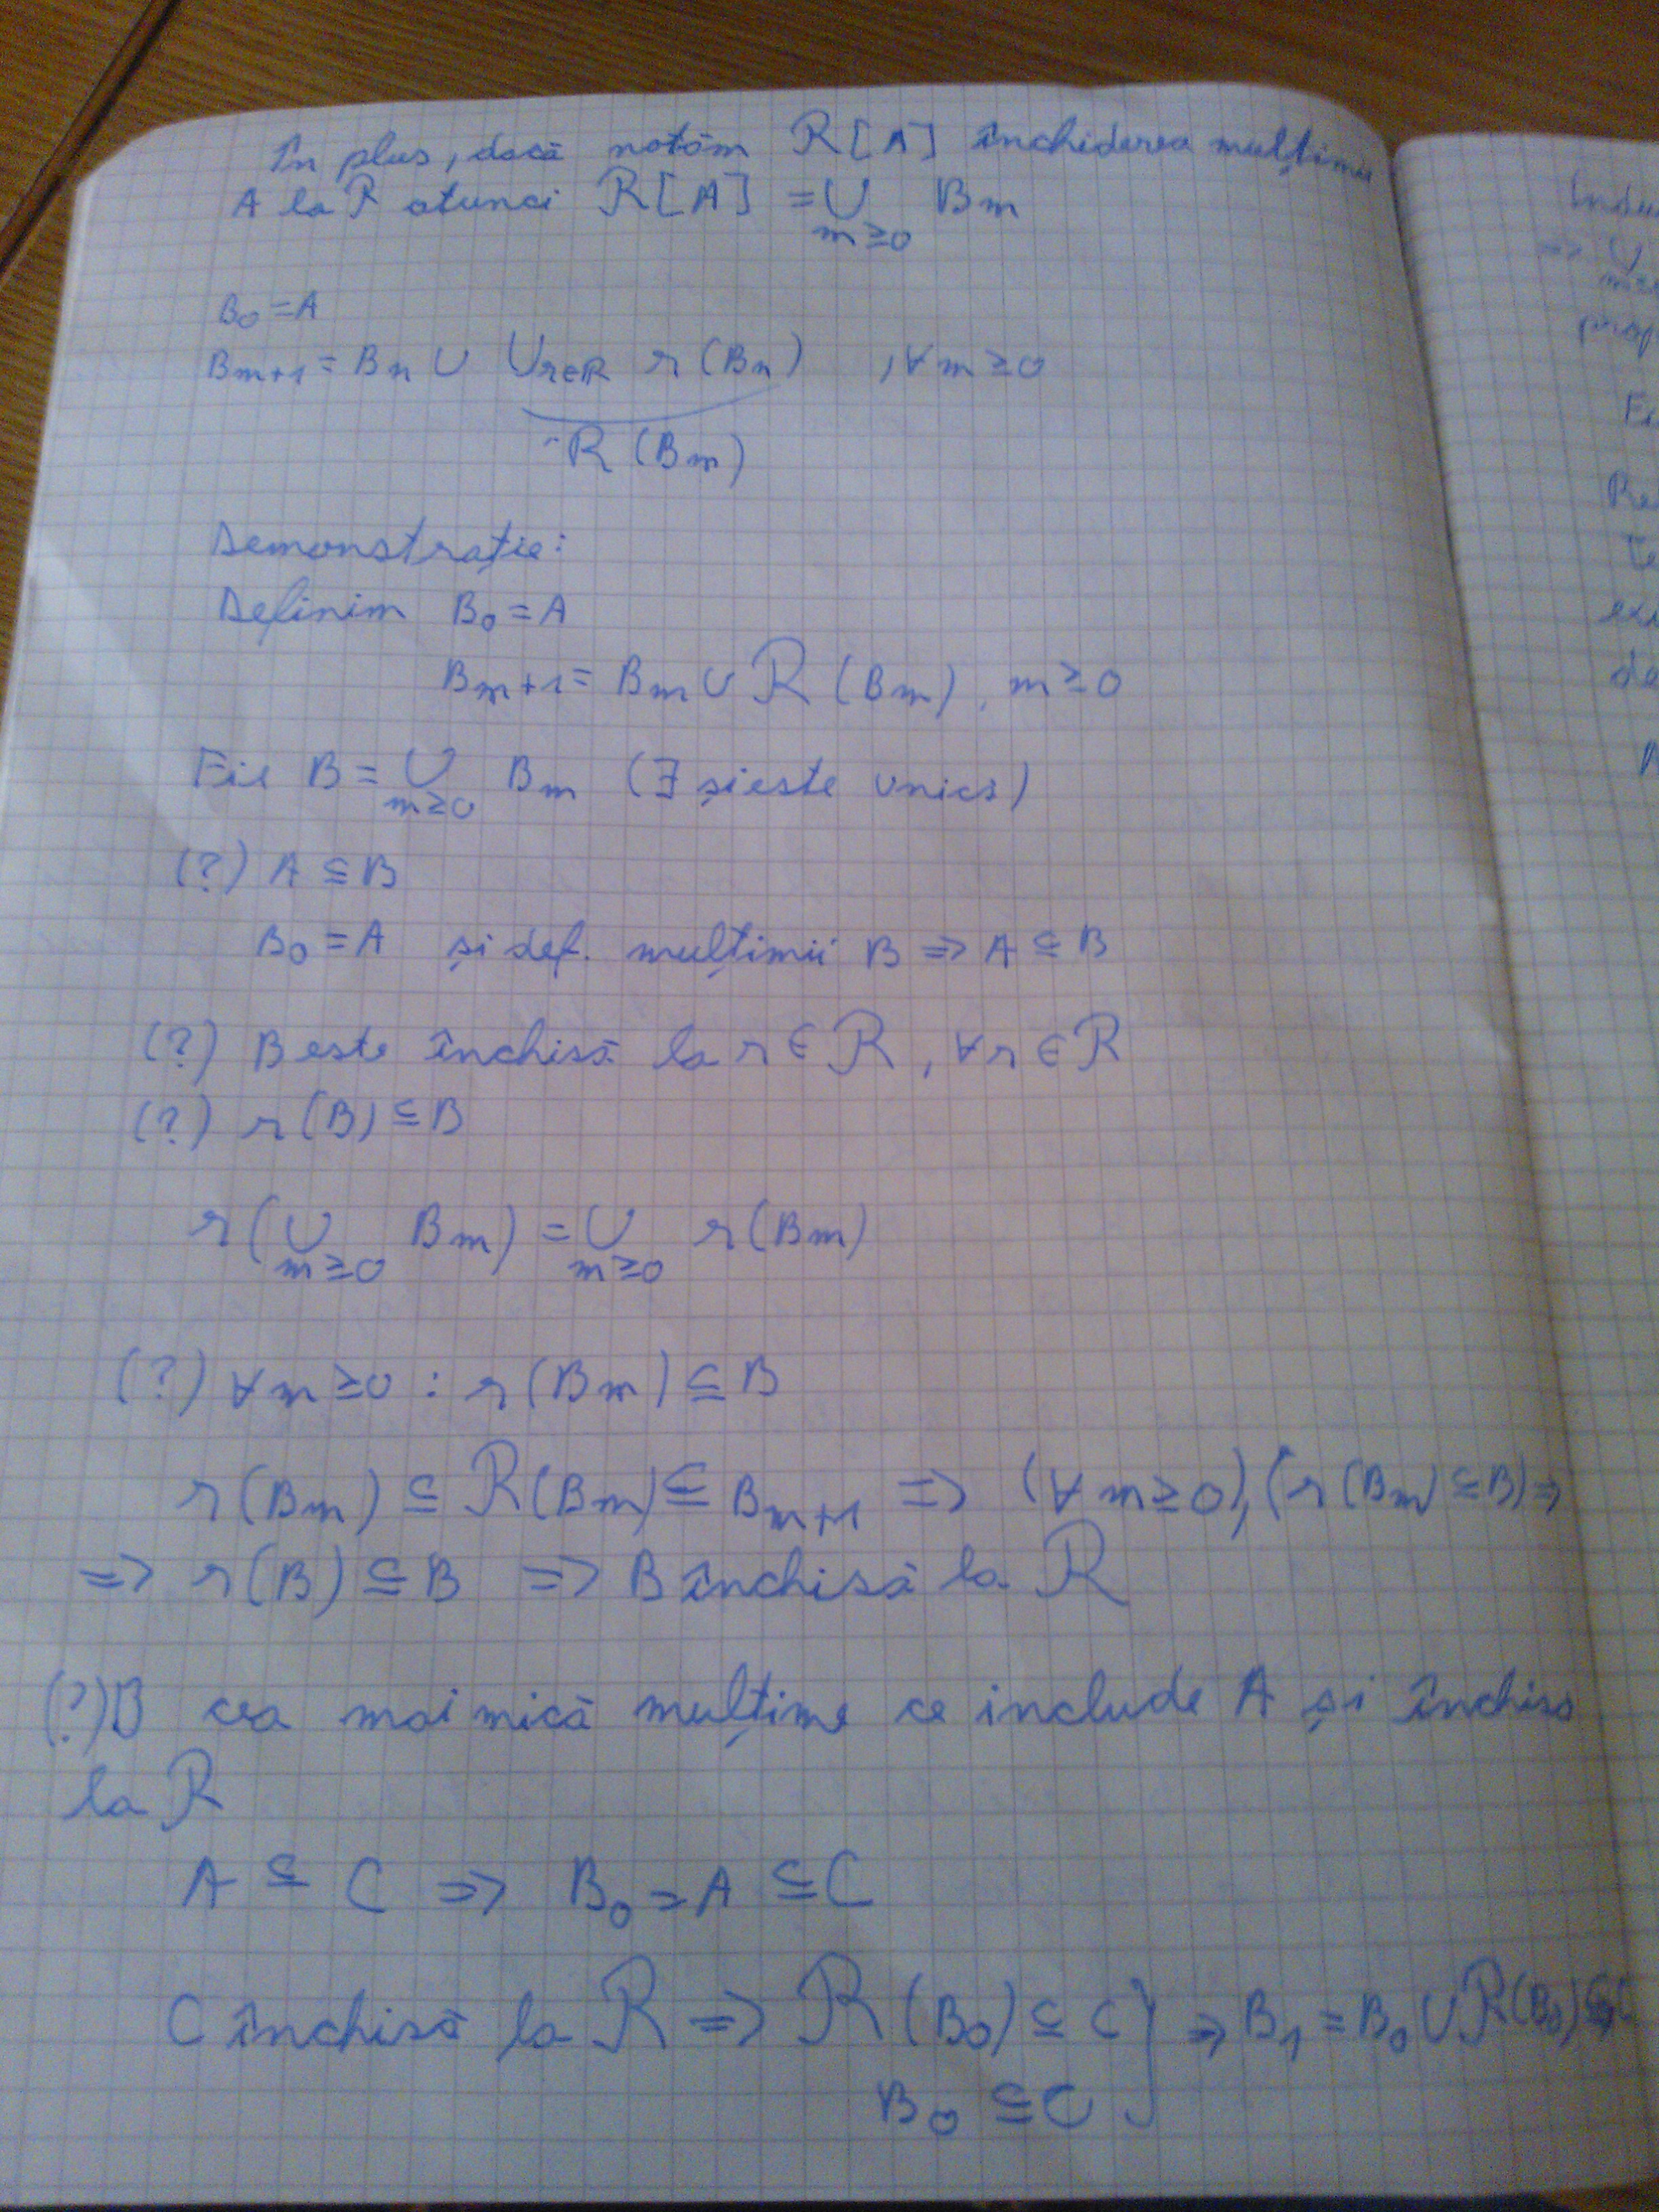 În plus, dacă notăm R[A] închiderea mulțimii
A la R atunci R[A] = ∪ Bm
m≥0
B0 = A
Bm+1 = Bn ∪ ∪r∈R r(Bn) , ∀m≥0
R(Bm)
Demonstrație:
Definim B0 = A
Bm+1 = Bm ∪ R(Bm), m≥0
Fie B = ∪ Bm (∃ și este unică)
m≥0
(?) A ⊆ B
B0 = A și def. mulțimii B => A ⊆ B
(?) B este închisă la r∈R, ∀r∈R
(?) r(B) ⊆ B
r(∪ Bm) = ∪ r(Bm)
m≥0 m≥0
(?) ∀m≥0 : r(Bm) ⊆ B
r(Bm) ⊆ R(Bm) ⊆ Bm+1 => (∀m≥0), (r(Bm) ⊆ B) =>
=> r(B) ⊆ B => B închisă la R
(?) B cea mai mică mulțime ce include A și închisă
la R
A ⊆ C => B0 = A ⊆ C
C închisă la R => R(B0) ⊆ C } => B1 = B0 ∪ R(B0) ⊆ C
B0 ⊆ C
=> ∪